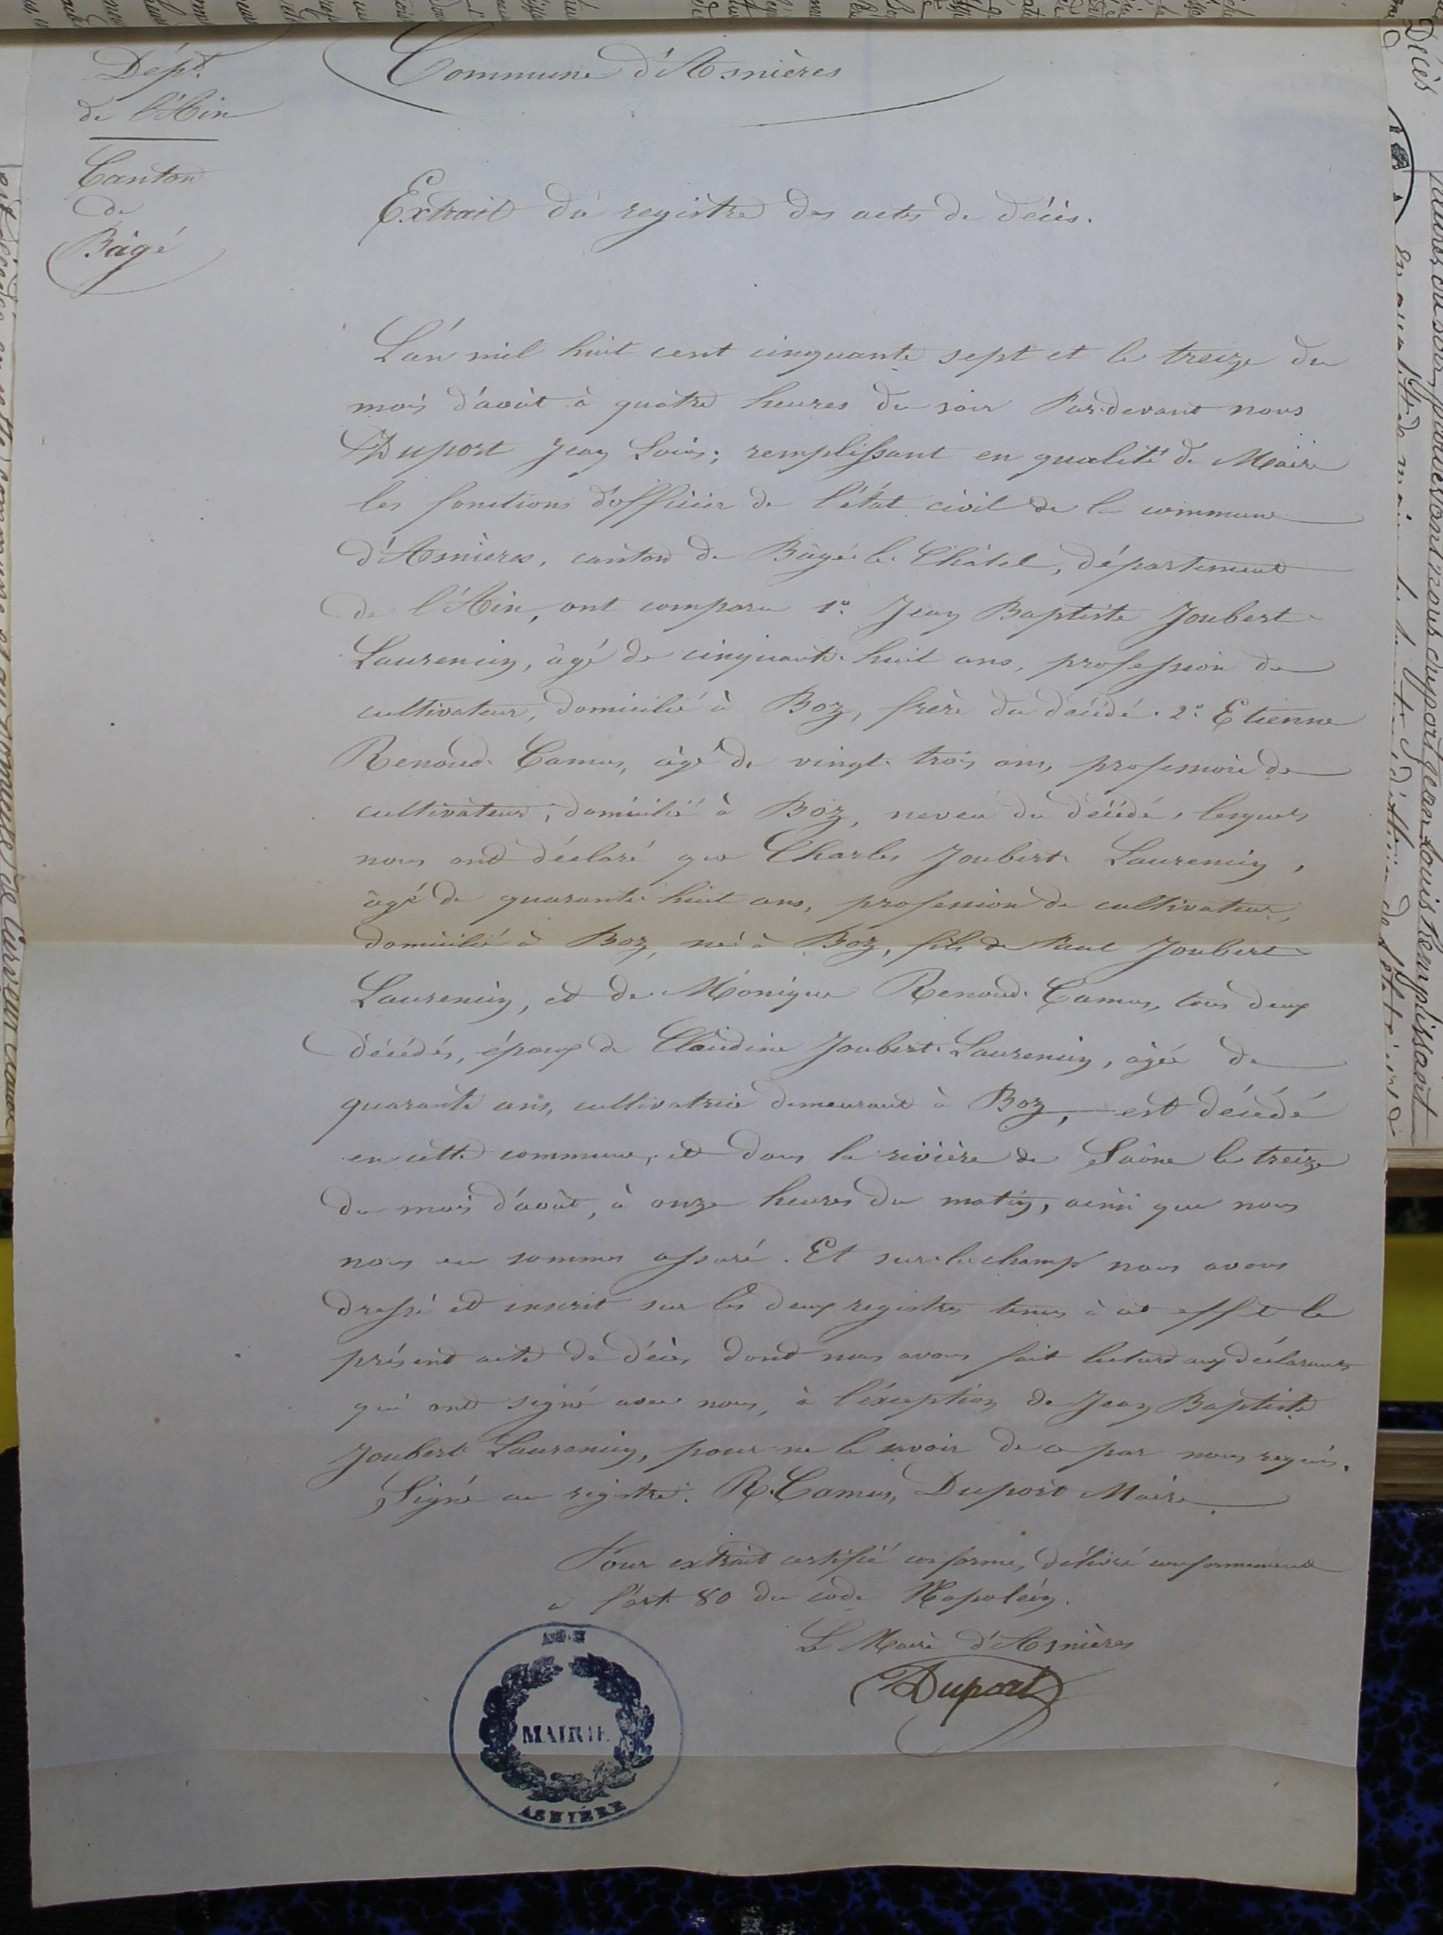 Dépt.
de l'Ain
Canton
de
Bâgé
Commune d'Asnières
Extrait du registre des actes de décès.
L'an mil huit cent cinquante sept et le treize du
mois d'août à quatre heures du soir Par-devant nous
Duport Jean Louis; remplissant en qualité de Maire
les fonctions d'officier de l'état civil de la commune
d'Asnières, canton de Bâgé-le-Châtel, département
de l'Ain, ont comparu 1° Jean Baptiste Joubert-
Laurencin, âgé de cinquante-huit ans, profession de
cultivateur, domicilié à Boz, frère du décédé. 2° Etienne
Renoud-Camus, âgé de vingt-trois ans, profession de
cultivateur, domicilié à Boz, neveu du décédé, lesquels
nous ont déclaré que Charles Joubert-Laurencin,
âgé de quarante-huit ans, profession de cultivateur,
domicilié à Boz, né à Boz, fils de Paul Joubert-
Laurencin, et de Monique Renoud-Camus, tous deux
décédés, époux de Claudine Joubert-Laurencin, âgée de
quarante ans, cultivatrice demeurant à Boz, est décédé
en cette commune, et dans la rivière de Saône le treize
du mois d'août, à onze heures du matin, ainsi que nous
nous en sommes assuré. Et sur-le-champ nous avons
dressé et inscrit sur les deux registres tenus à cet effet le
présent acte de décès dont nous avons fait lecture aux déclarants
qui ont signé avec nous, à l'éxception de Jean Baptiste
Joubert-Laurencin, pour ne le savoir de ce par nous requis.
Signé au registre: R. Camus, Duport Maire
Pour extrait certifié conforme, délivré conformément
à l'art. 80 du code Napoléon.
Le Maire d'Asnières
Duport
MAIRIE
ASNIÈRE
Décès